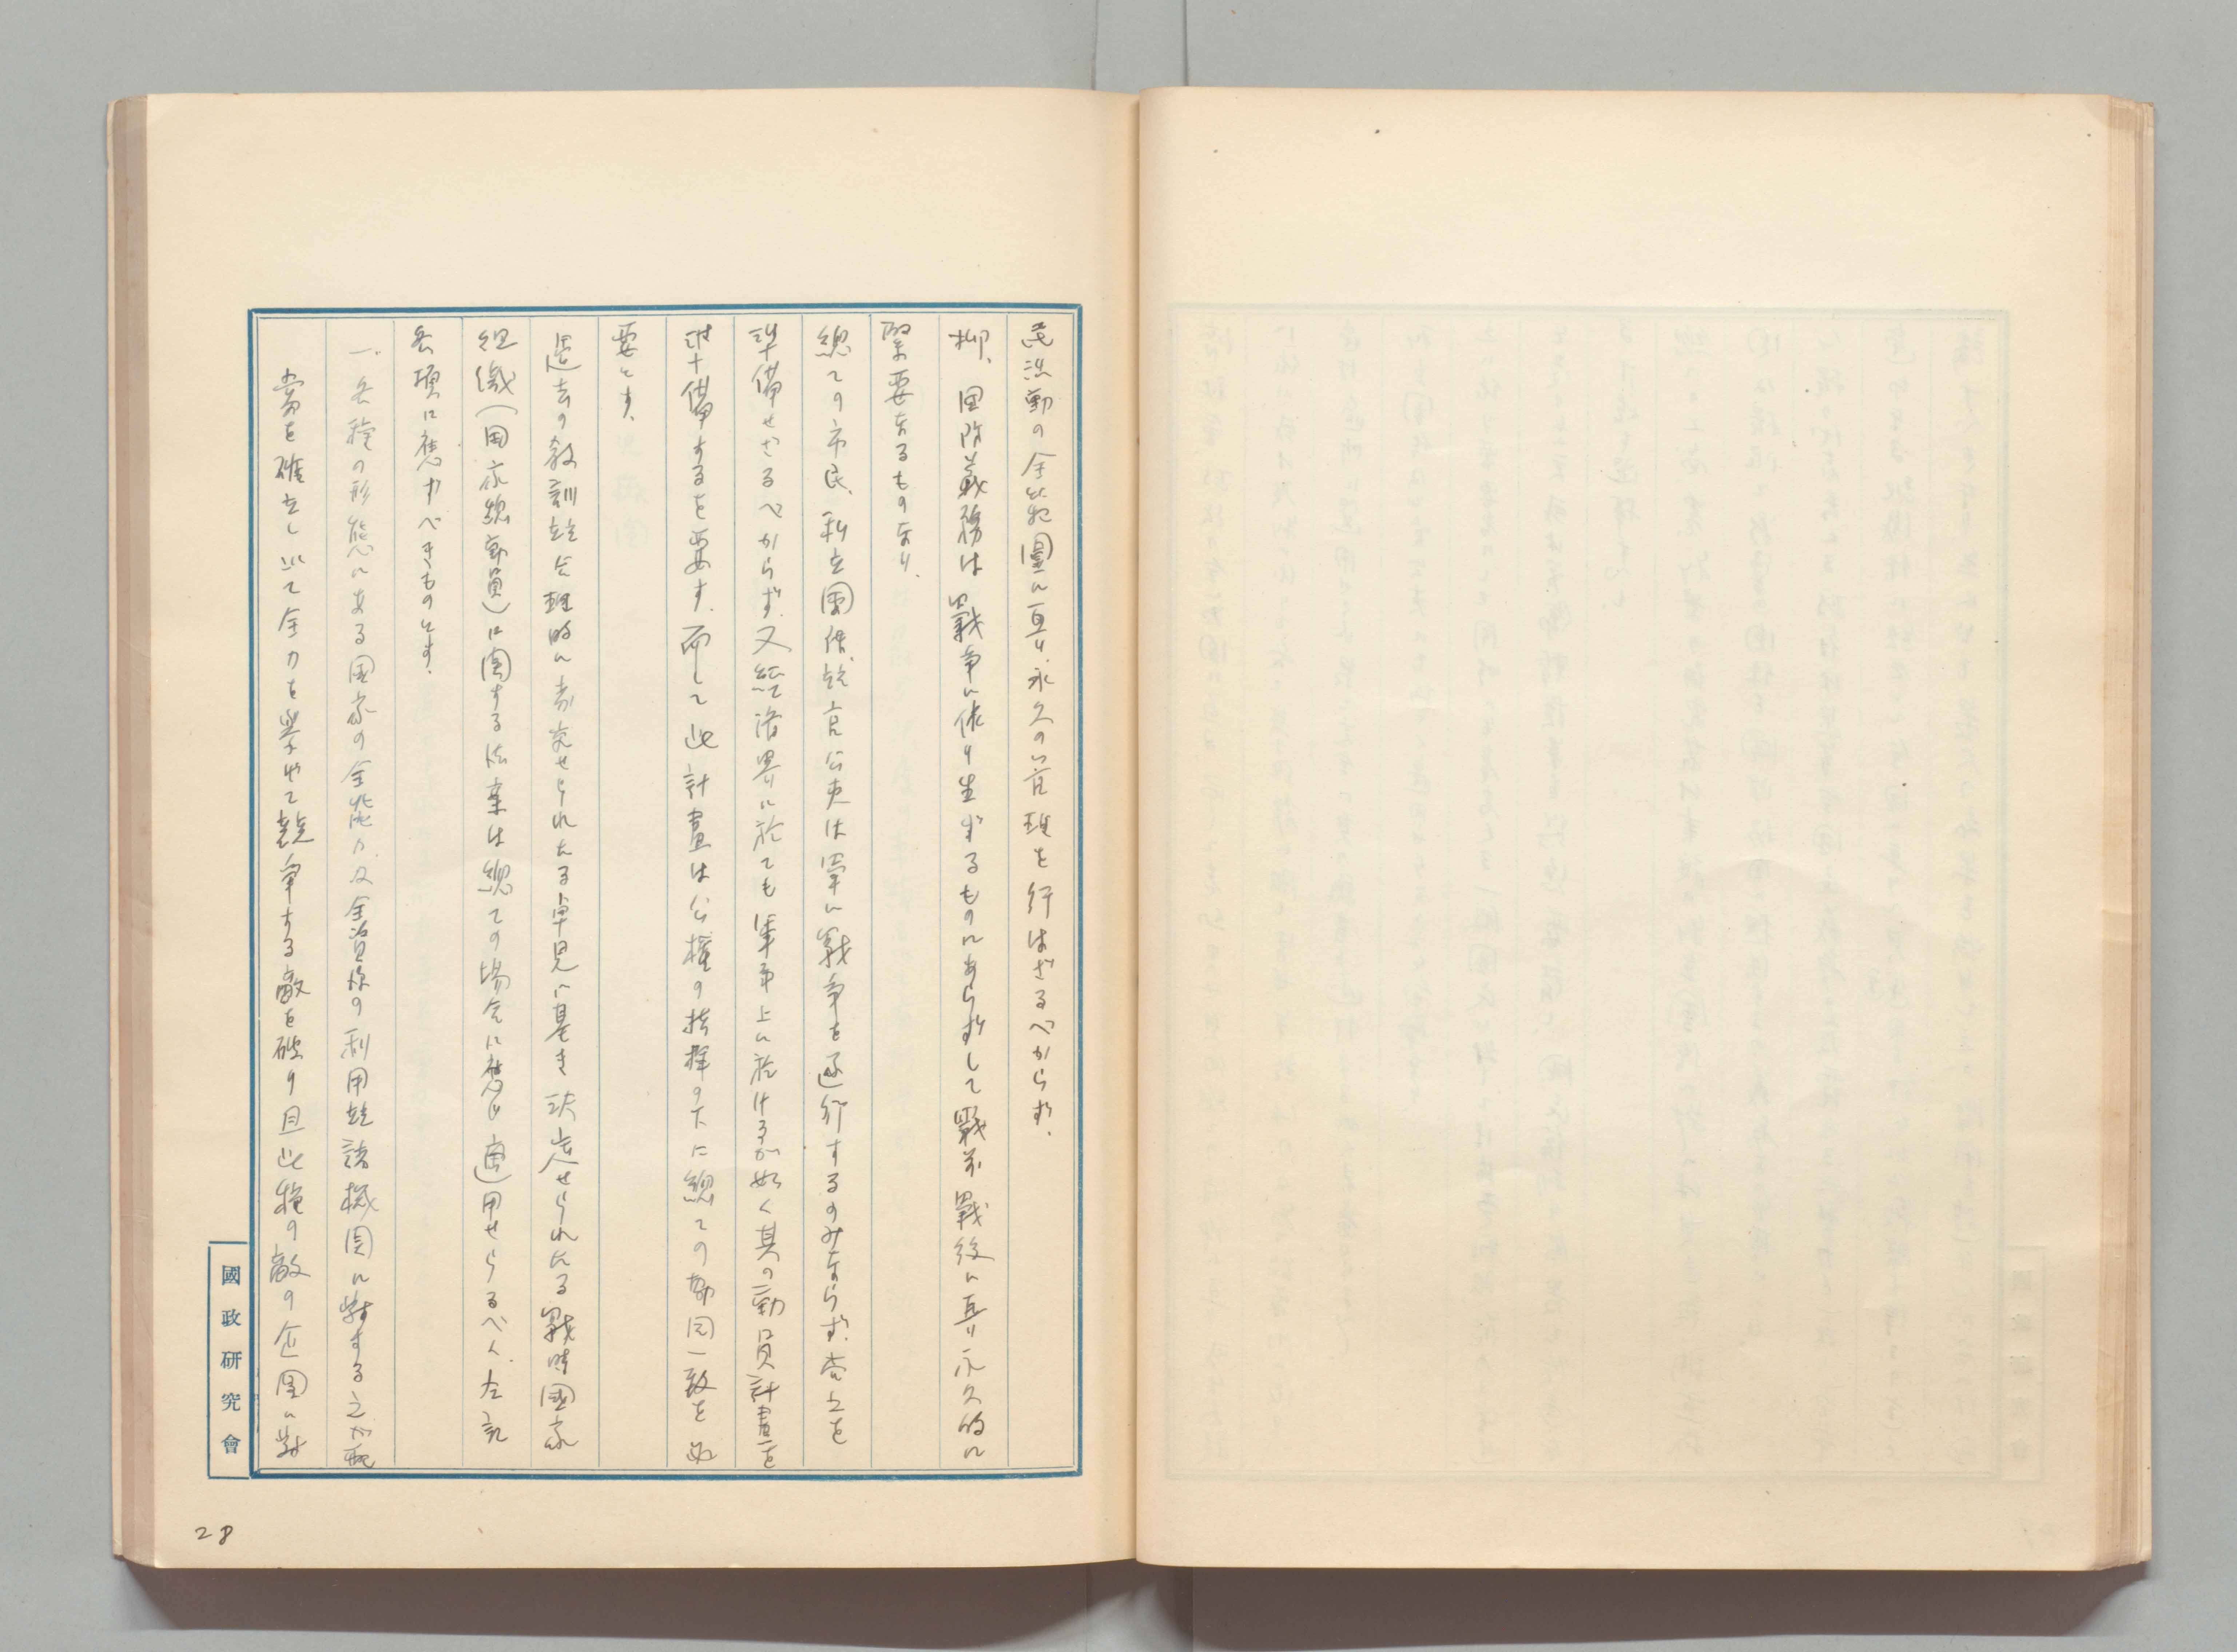 活動の全範圍に亘り永久の管理を行はざるべからず.
抑、国防義務は戰争に依り生ずるものにあらずして戰前戰後に亘り永久的に
緊要なるものなり.
總ての市民、私立團体竝官公吏は単に戰争を遂行するのみならず、豫め之を
準備せざるべからず.又経済界に於ても軍事上に於けるが如く其の動員計畫を
準備するを要す.而して此計畫は公權の指揮の下に總ての協同一致を必
要とす.
過去の教訓竝合理的に考究せられたる卓見に基き決定せられたる戰時國家
組織(国家總動員)に関する法案は總ての場合に應じ適用せらるべく、左記
各項に應ずべきものとす.
一.各種の形態にある国家の全能力及全資源の利用竝諸機関に對する之が配
當を確立し以て全力を挙げて競争する敵を破り且此種の敵の企図に對
國政研究會
28